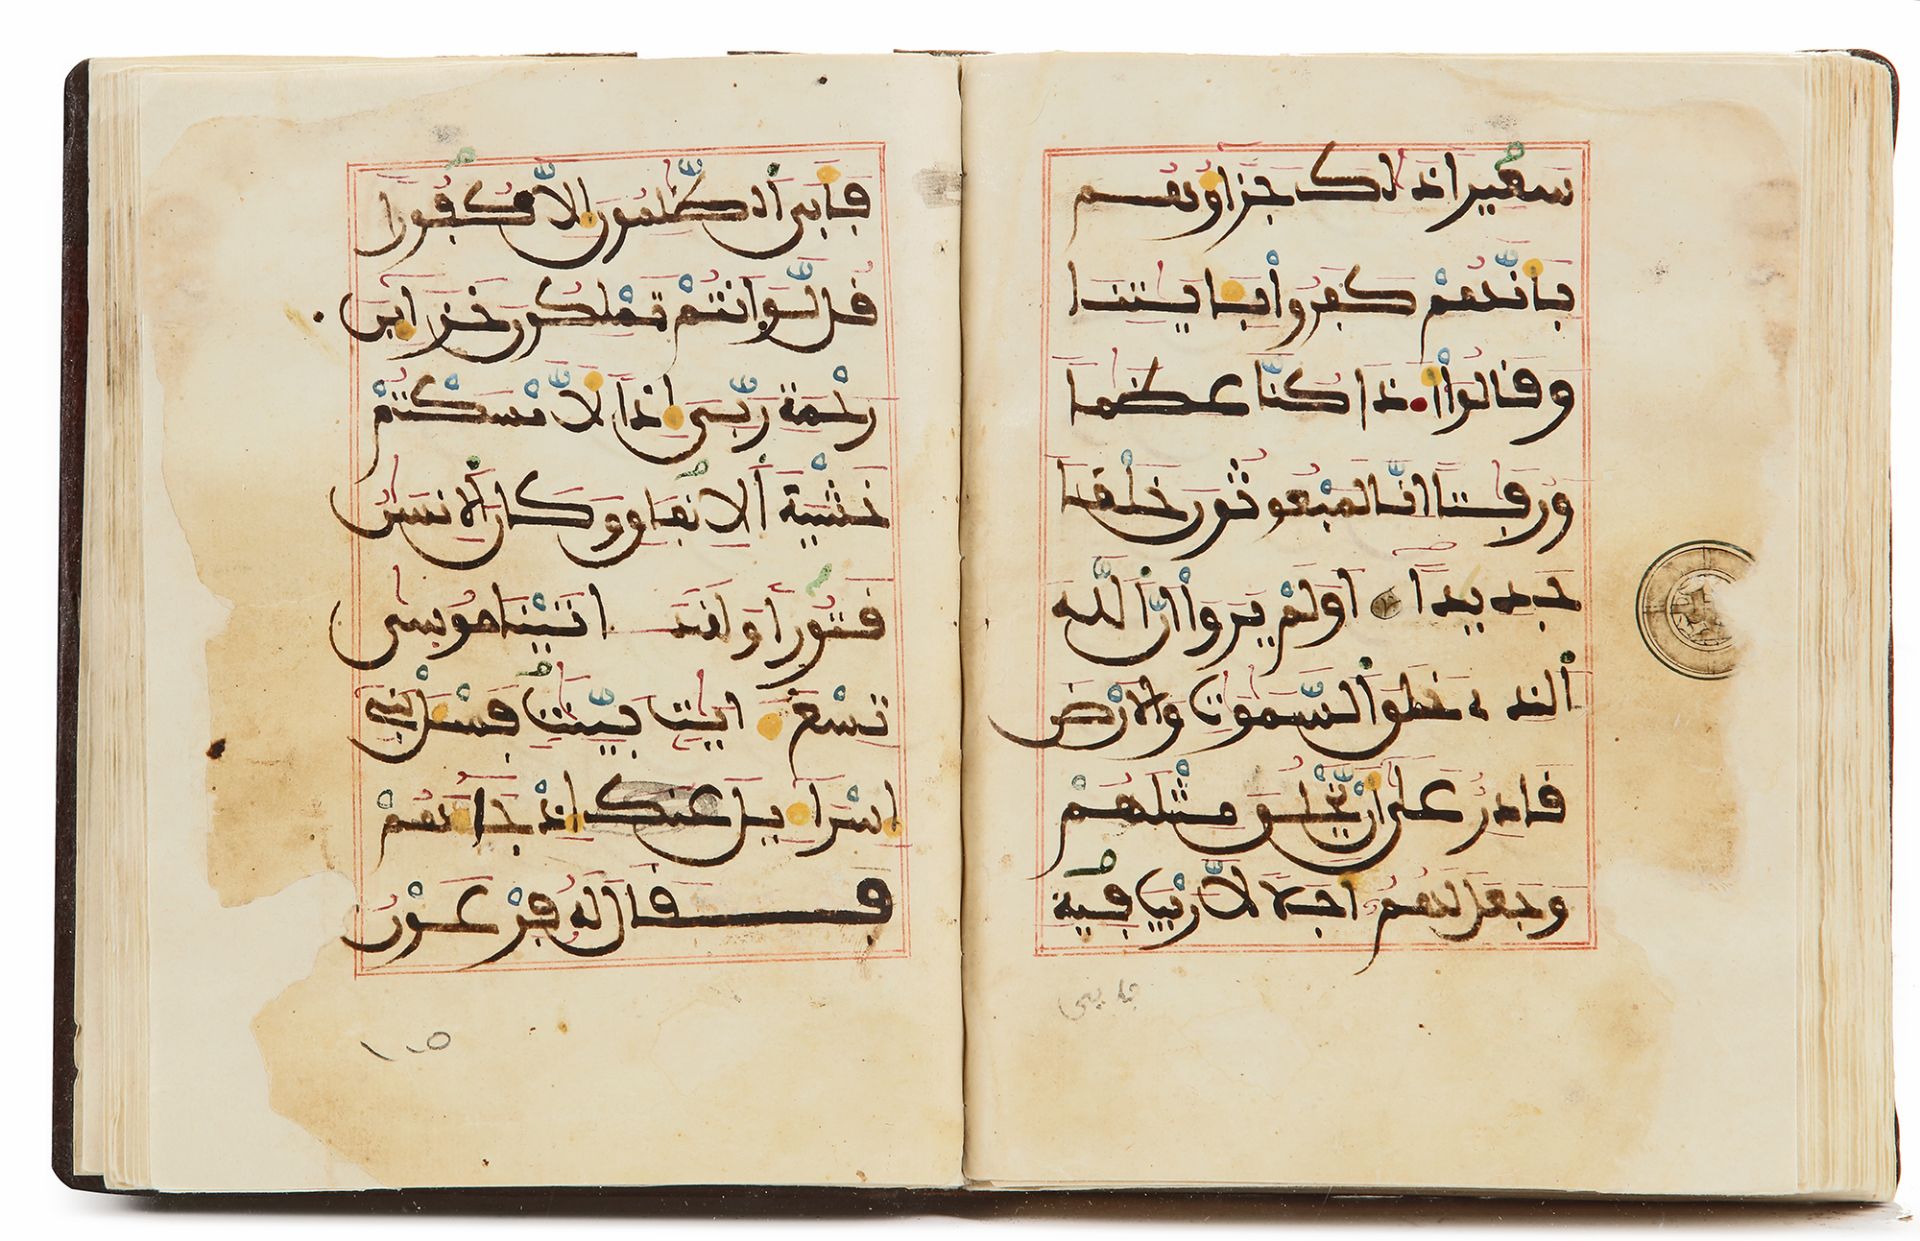 سعيرا ذلك جزاوهم
بأنهم كفروا بـٔايتنا
وقالوا أ.ذا كنا عظما
ورفتا انا لمبعوثون خلقا
جديدا اولم يروا ان الله
الذے خلق السموت والارض
قادر على ان يخلق مثلهم
وجعل لهم اجلا لا ريب فيه
فابى
فأبى الظلمون الا كفورا
قل لو انتم تملكون خزاين
رحمة ربى اذا لامسكتم
خشية الانفاق وكان الانسن
قتورا ولقد اتينا موسى
تسع ايت بينت فسل بنى
اسراىيل اذ جاهم
فقال له فرعون